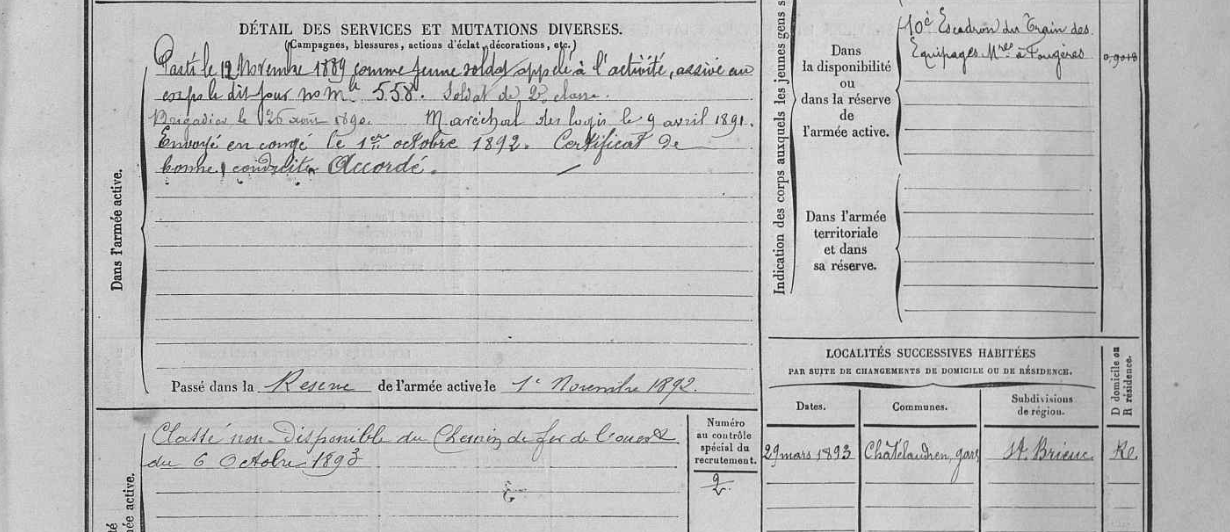 DÉTAIL DES SERVICES ET MUTATIONS DIVERSES.
(Campagnes, blessures, actions d'éclat, décorations, etc.)
Dans l'armée active.
Parti le 12 Novembre 1889 comme jeune soldat appelé à l'activité, arrivé au
corps le dit jour no mle 558. Soldat de 2e classe.
Brigadier le 26 1890. Maréchal des logis le 9 avril 1891.
Envoyé en congé le 1er octobre 1892. Certificat de
bonne conduite Accordé.
Passé dans la Reserve de l'armée active le 1e Novembre 1892.
Classé non-Disponible du Chemin de fer de l'ouest
du 6 Octobre 1893
Numéro
au contrôle
spécial du
recrutement.
mée active.
Indication des corps auxquels les jeunes gens s
Dans
la disponibilité
ou
dans la réserve
de
l'armée active.
10e Escadron du Train des
Equipages Mres à Fougères
Dans l'armée
territoriale
et dans
sa réserve.
LOCALITÉS SUCCESSIVES HABITÉES
PAR SUITE DE CHANGEMENTS DE DOMICILE OU DE RÉSIDENCE.
Dates.
Communes.
Subdivisions
de région.
D domicile ou
R résidence.
29 mars 1893 Châtelaudren, gare St. Brieuc Re